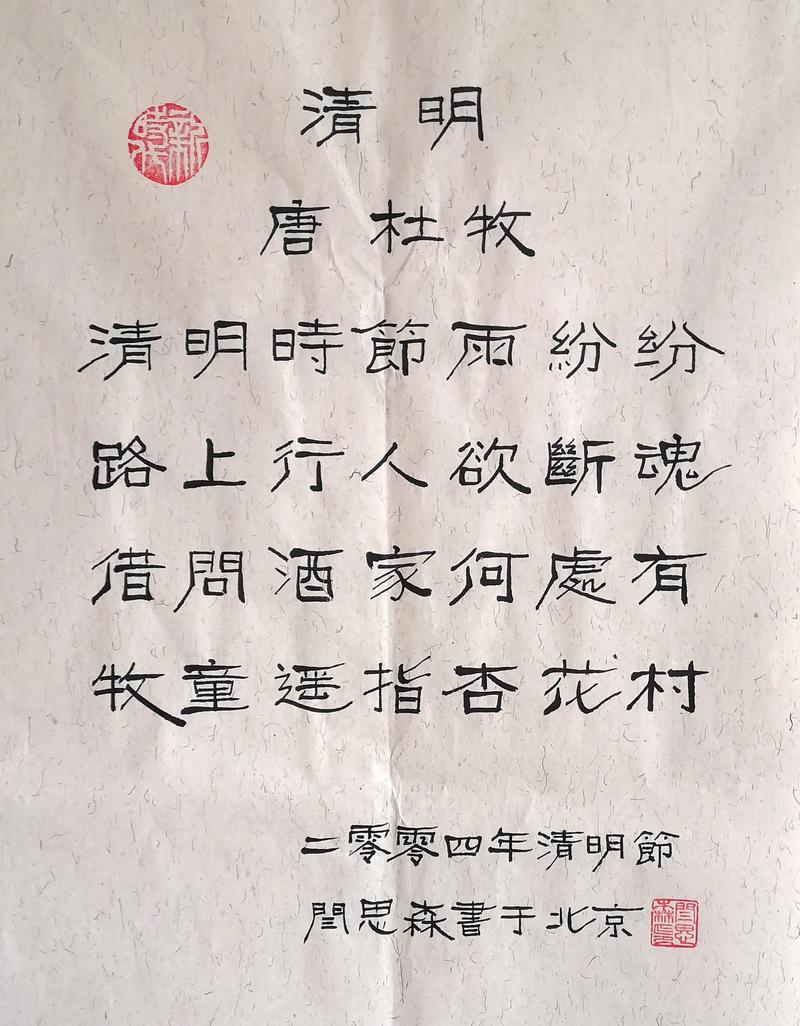 清明
唐 杜牧
清明時節雨紛纷
路上行人欲斷魂
借問酒家何處有
牧童遥指杏花村
二零零四年清明節
閆思森書于北京
新時代
閆思森印